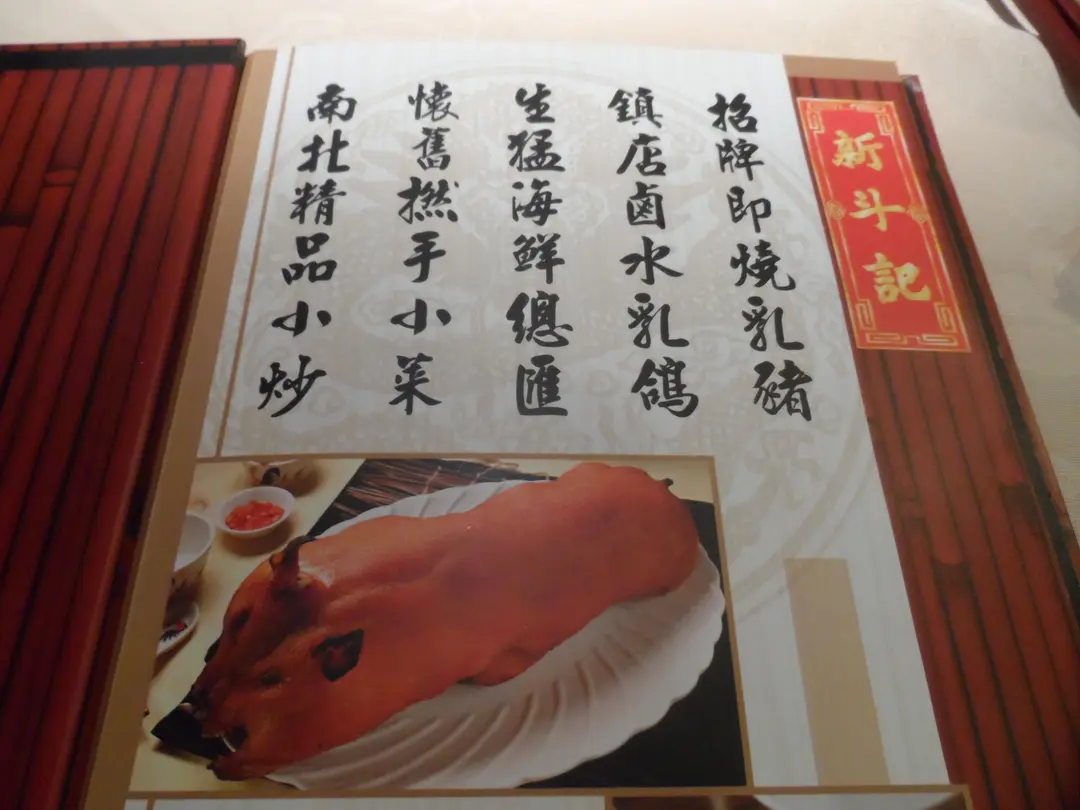 新斗記
招牌即燒乳豬
鎮店鹵水乳鴿
生猛海鮮總匯
懷舊撚手小菜
南北精品小炒